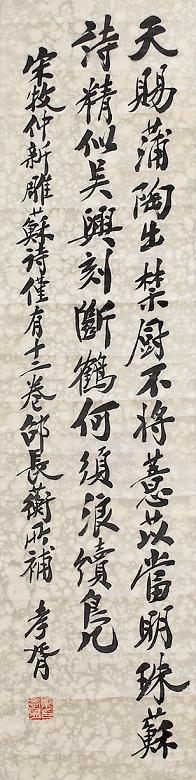 天賜蒲陶出禁厨不將薏苡當明珠蘇
詩精似吳興刻斷鶴何須浪續鳧
宋牧仲新雕蘇詩僅有十二卷邵長蘅所補 孝胥